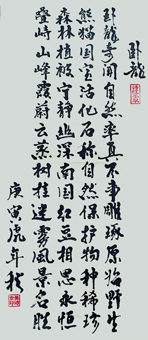 卧龍
卧龍奇闻自然率真不事雕琢原始野生
熊猫国宝活化石称自然保护物种稀珍
森林植被宁静幽深南国红豆相思永恒
叠嶂山峰霞蔚云蒸树挂迷雾风景名胜
庚寅虎年